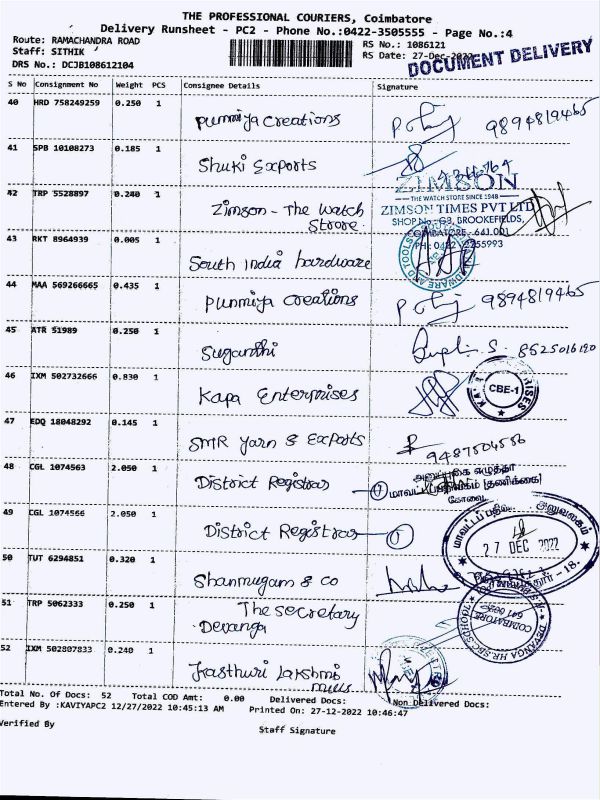 THE PROFESSIONAL COURIERS, Coimbatore
Delivery Runsheet - PC2 - Phone No.:0422-3505555 - Page No.:4
Route: RAMACHANDRA ROAD
RS No.: 1086121
Staff: SITHIK
RS Date: 27-Dec-2022
DRS No.: DCJB108612104
DOCUMENT DELIVERY
S No Consignment No Weight PCS Consignee Details Signature
40 HRD 758249259 0.250 1 Punmiya Creations 9894819465
41 SPB 10108273 0.185 1 Shuki Exports
ZIMSON
THE WATCH STORE SINCE 1948
ZIMSON TIMES PVT LTD
SHOP No.: G3, BROOKEFIELDS,
COIMBATORE - 641 001
42 TRP 5528897 0.240 1 Zimson - The Watch
Strore
43 RKT 8964939 0.005 1 South India hardware
44 MAA 569266665 0.435 1 Punmiya Creations 9894819465
45 ATR 51989 0.250 1 Sugandhi
46 IXM 502732666 0.830 1 Kapa Enterprises
CBE-1
47 EDQ 18048292 0.145 1 SMR Yarn & Exports 9487504556
48 CGL 1074563 2.050 1 District Registrar
கோவை
49 CGL 1074566 2.050 1 District Registrar
27 DEC 2022
50 TUT 6294851 0.320 1 Shanmugam & Co
51 TRP 5062333 0.250 1 The Secretary
Devanga
COIMBATORE
52 IXM 502807833 0.240 1 Kasthuri Lakshmi
Mills
Total No. Of Docs: 52 Total COD Amt: 0.00 Delivered Docs: Non Delivered Docs:
Entered By :KAVIYAPC2 12/27/2022 10:45:13 AM Printed On: 27-12-2022 10:46:47
Verified By
Staff Signature